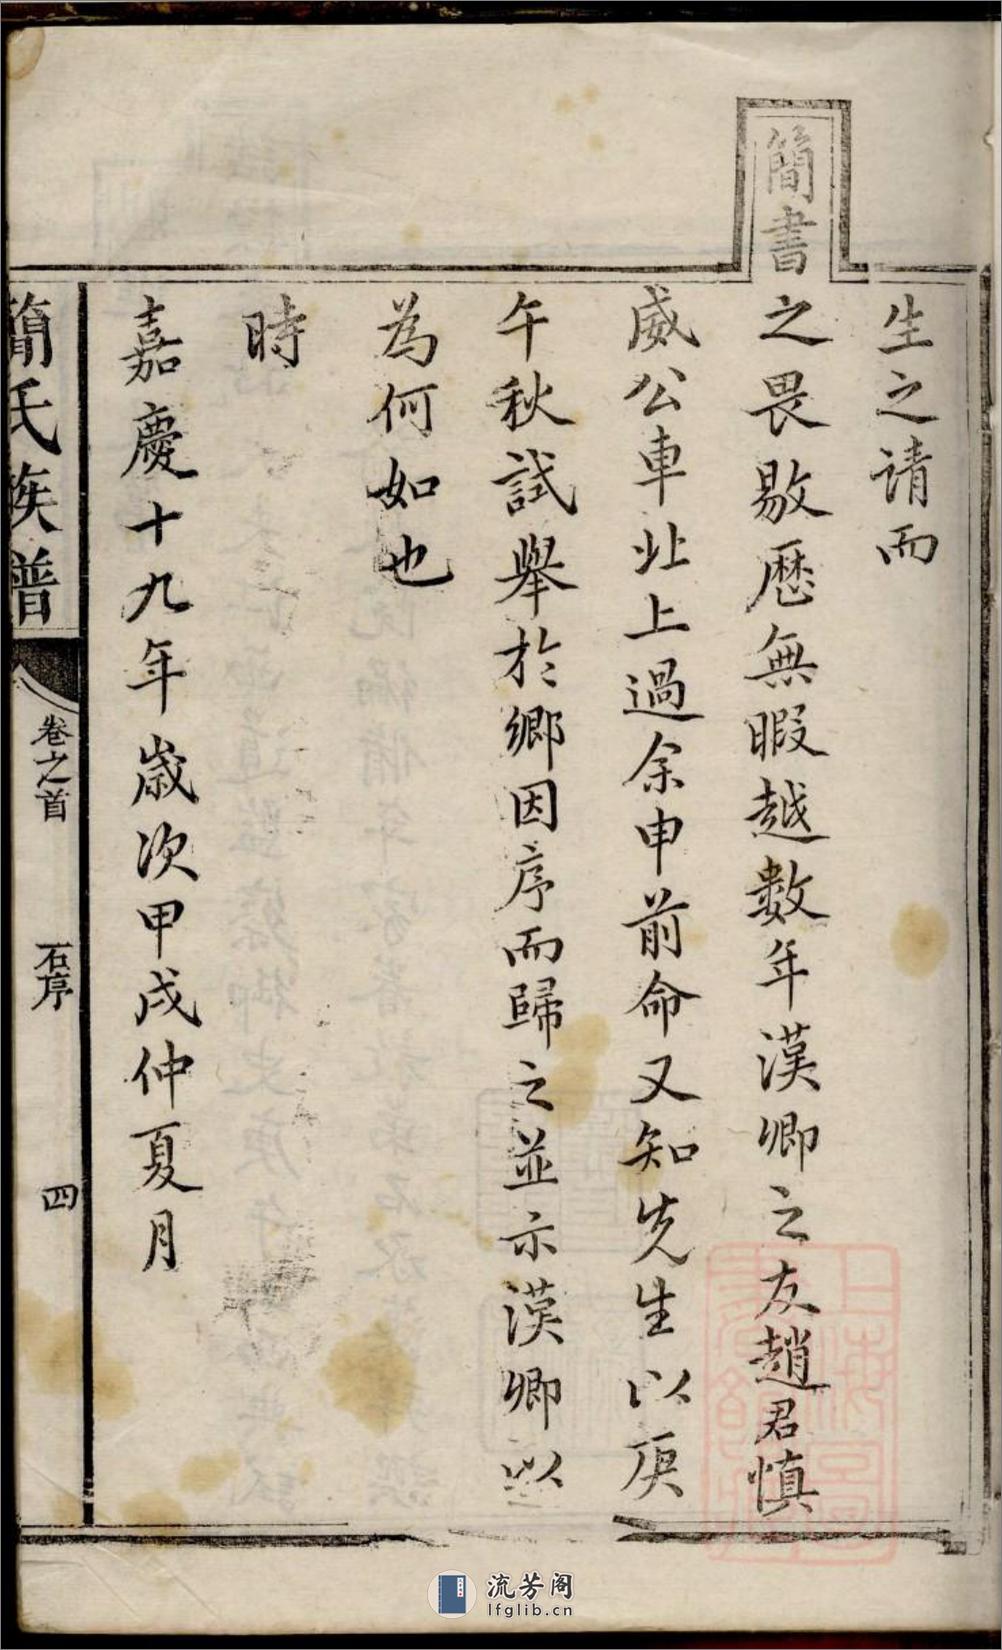 生之请而
簡書
之畏敭歷無暇越數年漢卿之友趙君慎
威公車北上過余申前命又知先生以庚
午秋試舉於鄉因序而歸之並示漢卿以
為何如也
時
嘉慶十九年歲次甲戌仲夏月
簡氏族譜
卷之首
石序
四
流芳阁
lfglib.cn